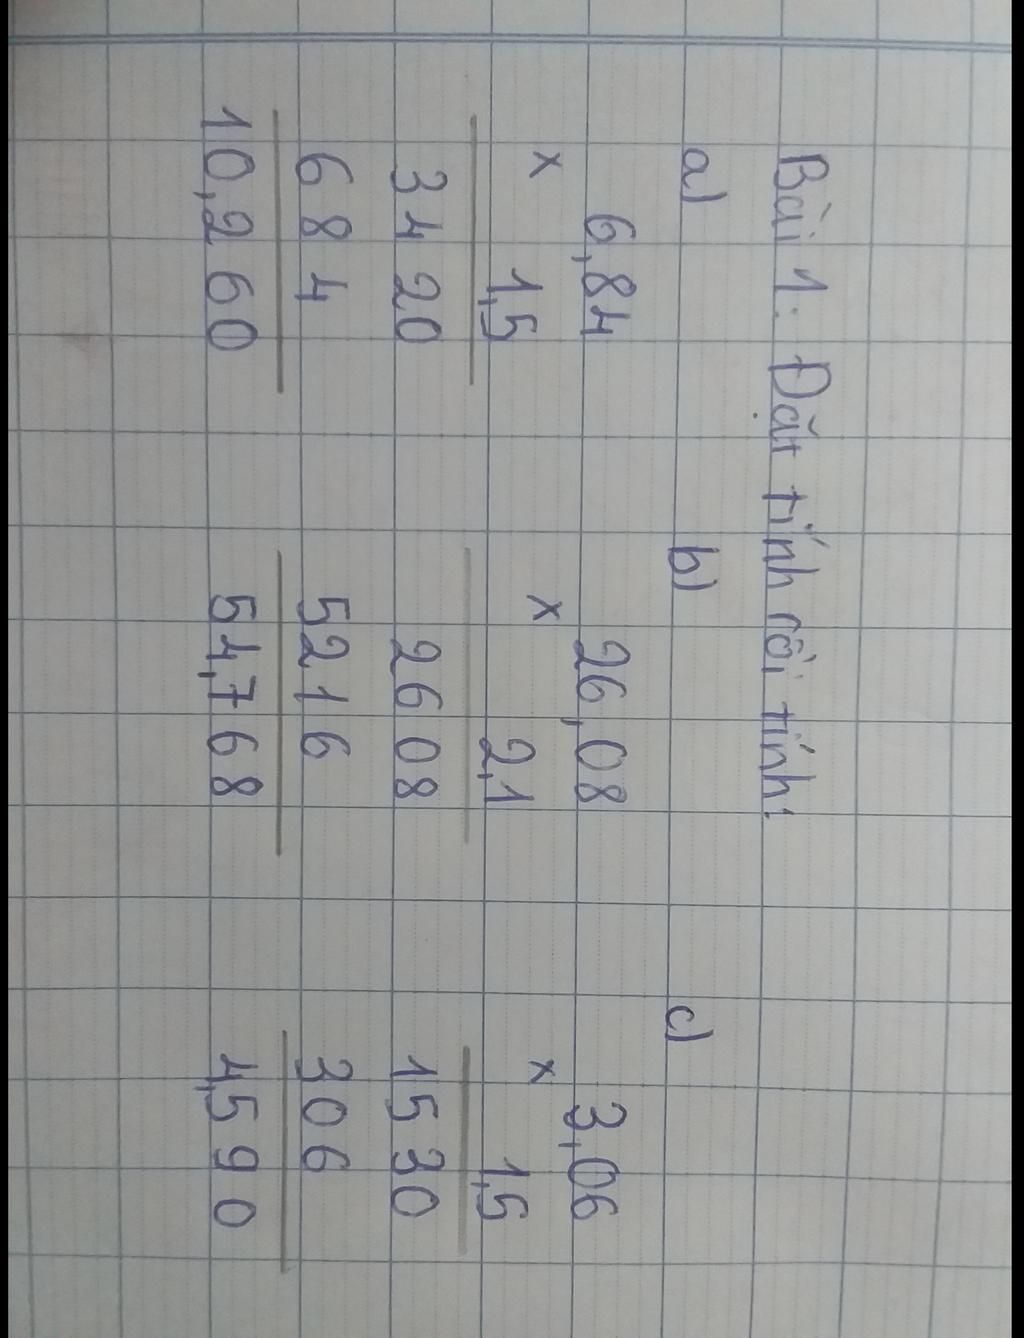 Bài 1: Đặt tính rồi tính:
a) b) c)
6,84 26,08 3,06
x 1,5 x 2,1 x 1,5
3420 2608 1530
684 5216 306
10,260 54,768 4,590